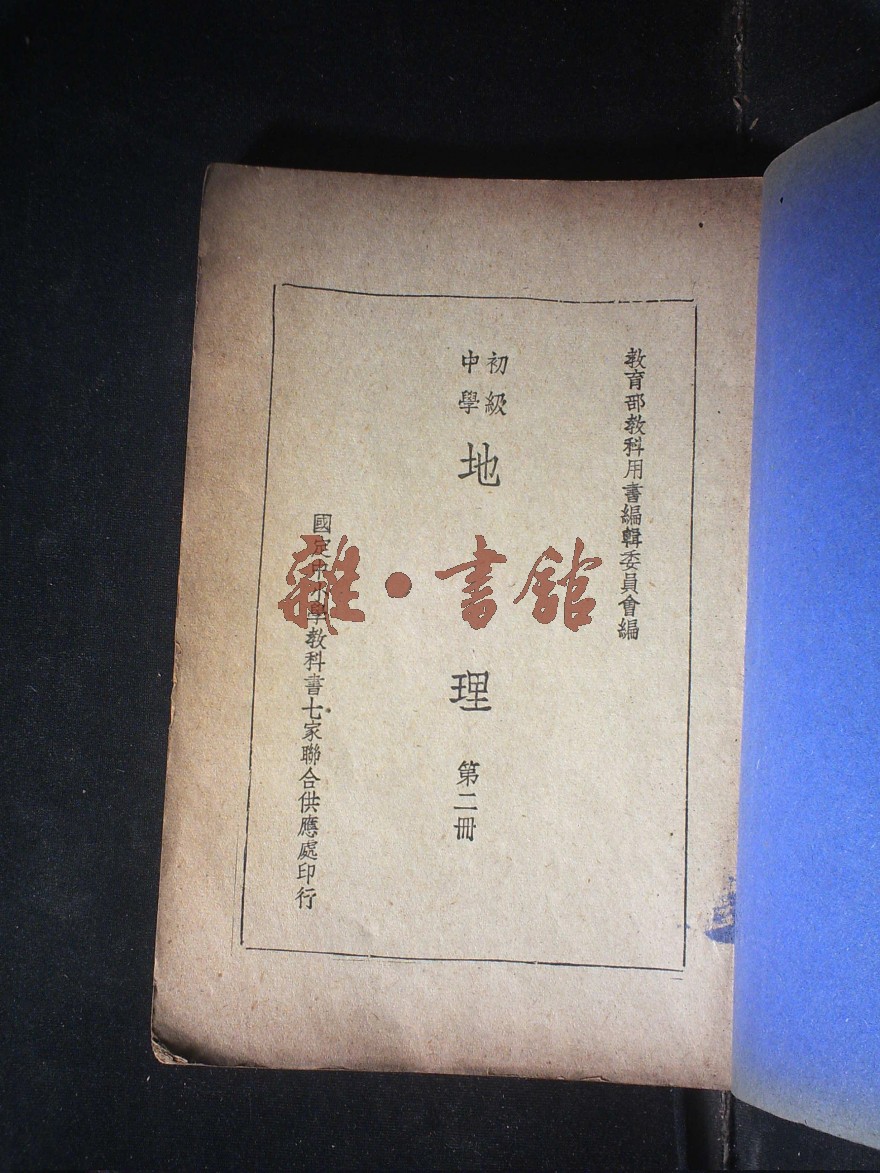 教育部教科用書編輯委員會編
初級
中學
地理 第二冊
國定中小學教科書七家聯合供應處印行
雜·書館